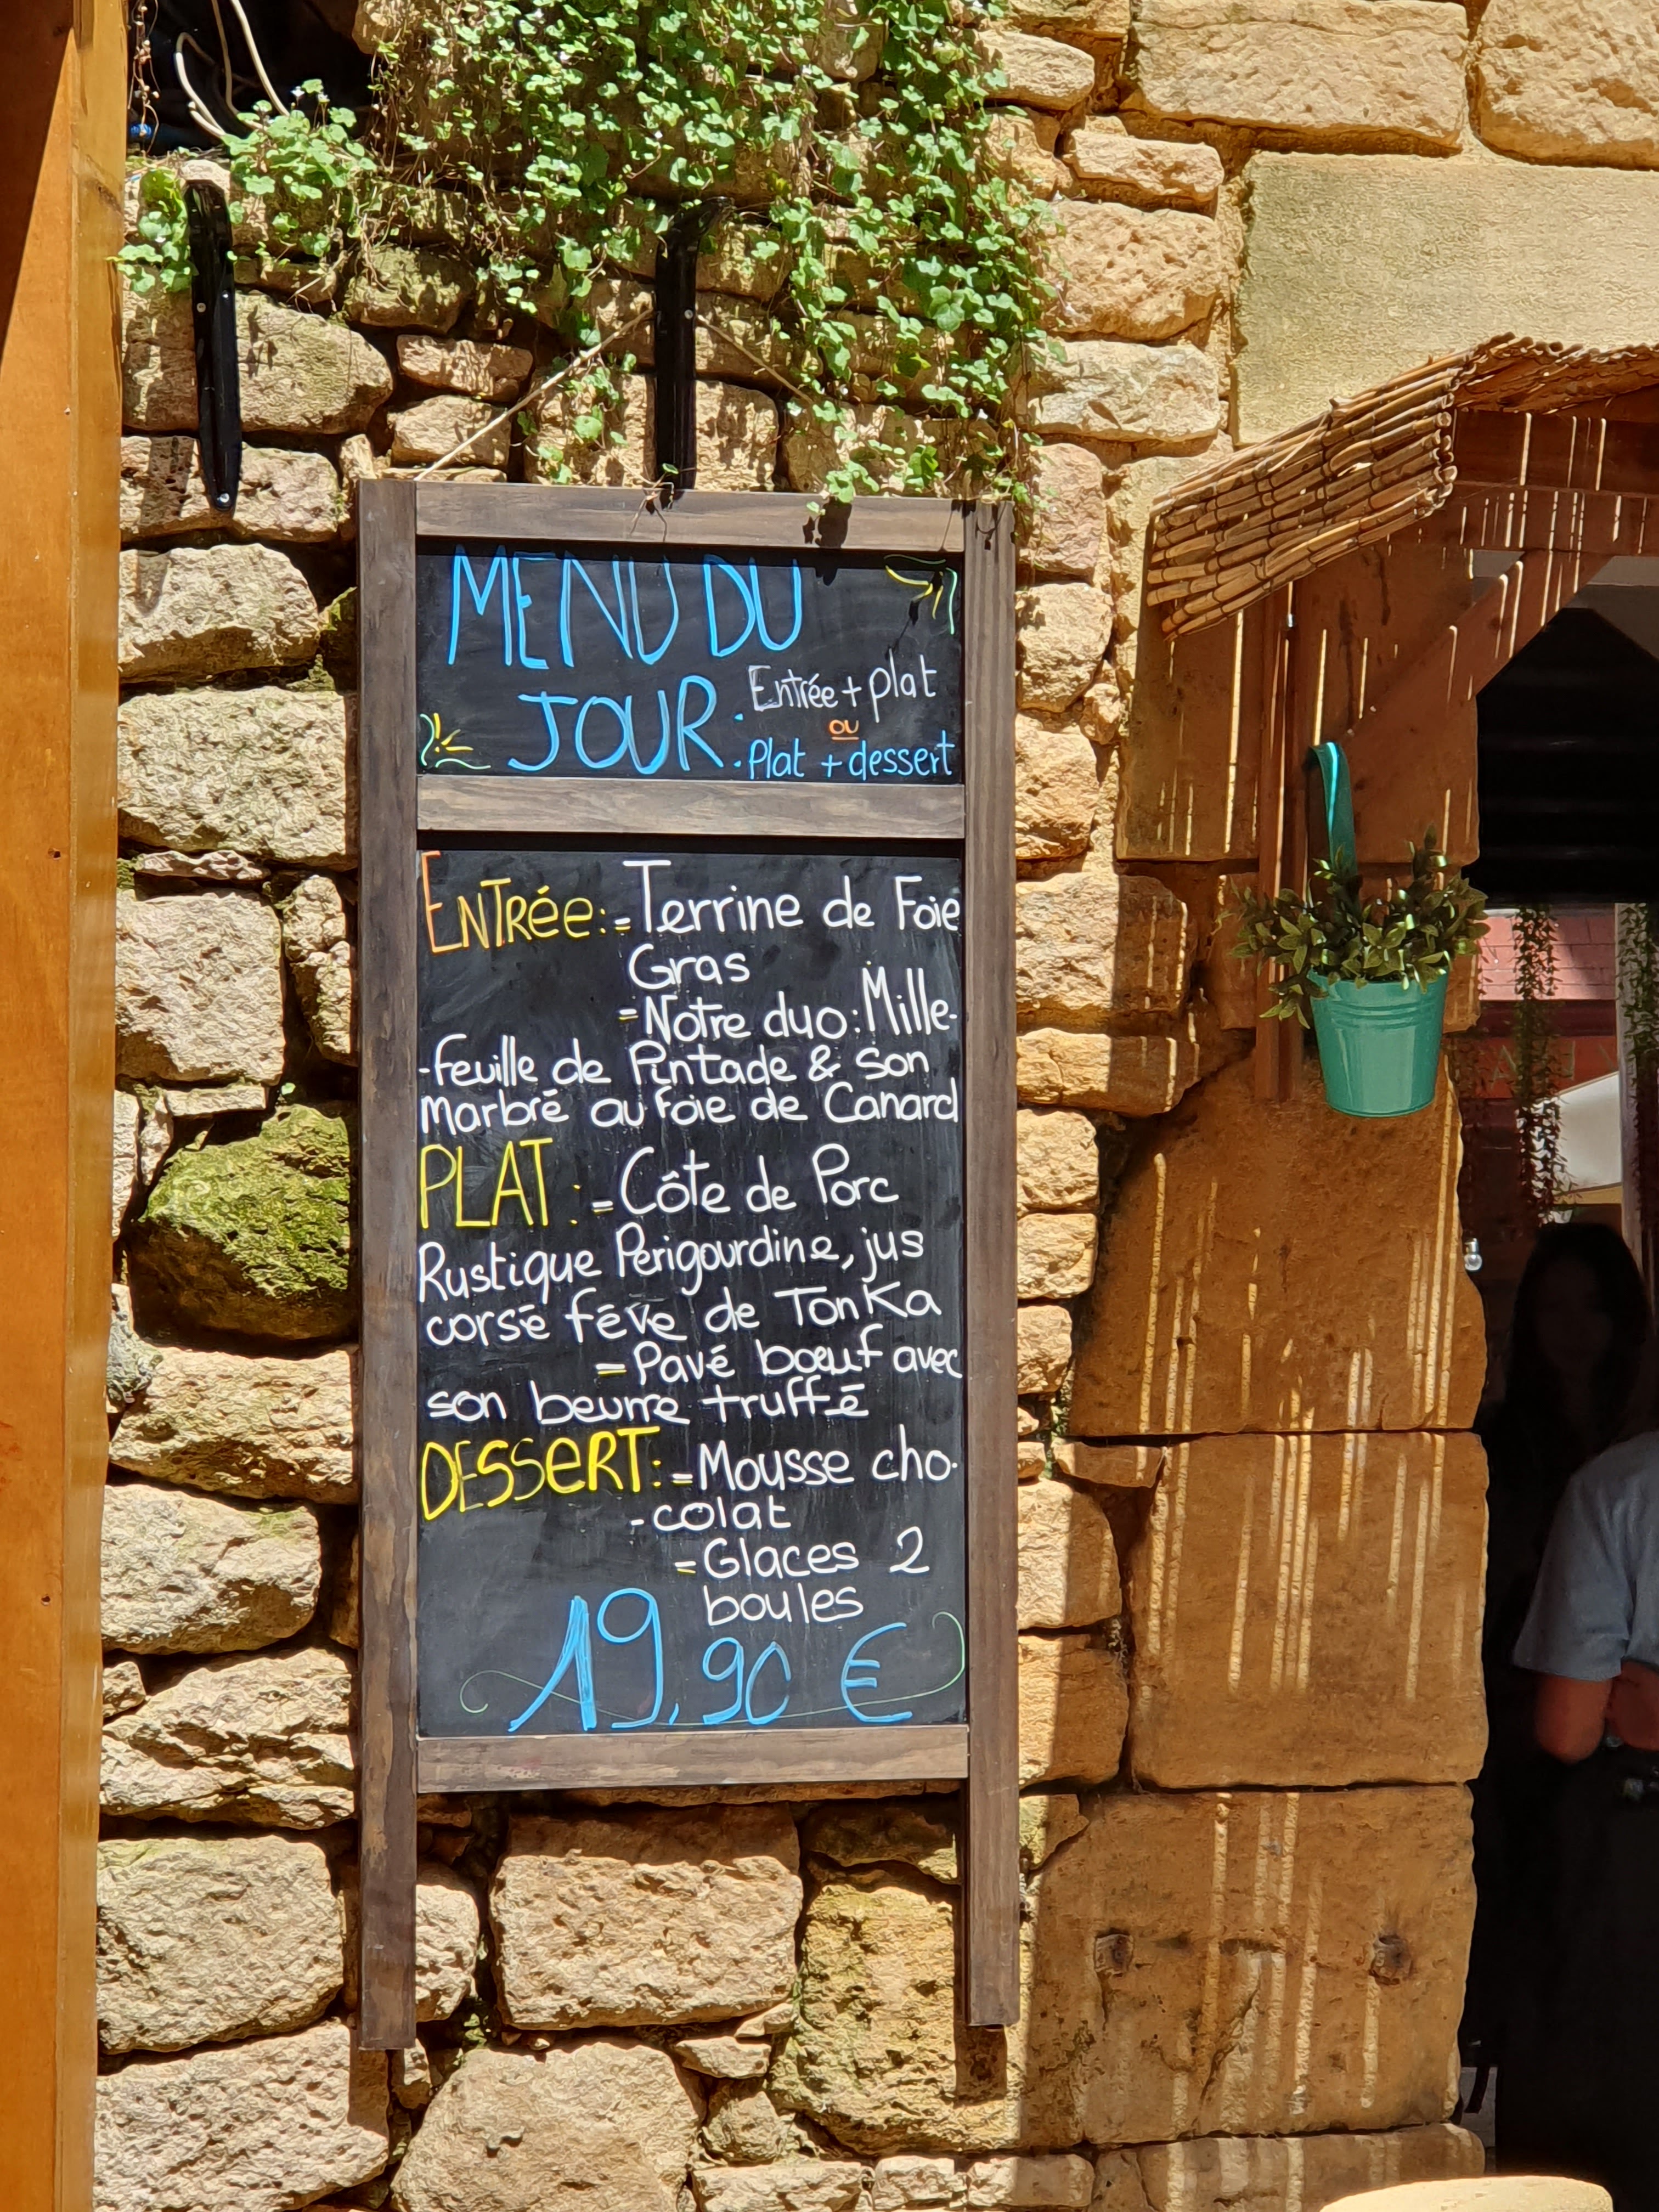 MENU DU
JOUR : Entrée + plat
ou
Plat + dessert
ENTRée: = Terrine de Foie
Gras
= Notre duo: Mille-
-feuille de Pintade & son
Marbré au foie de Canard
PLAT : = Côte de Porc
Rustique Périgourdine, jus
corsé fève de Tonka
= Pavé bœuf avec
son beurre truffé
DESSERT: = Mousse cho-
-colat
= Glaces 2
boules
19,90 €